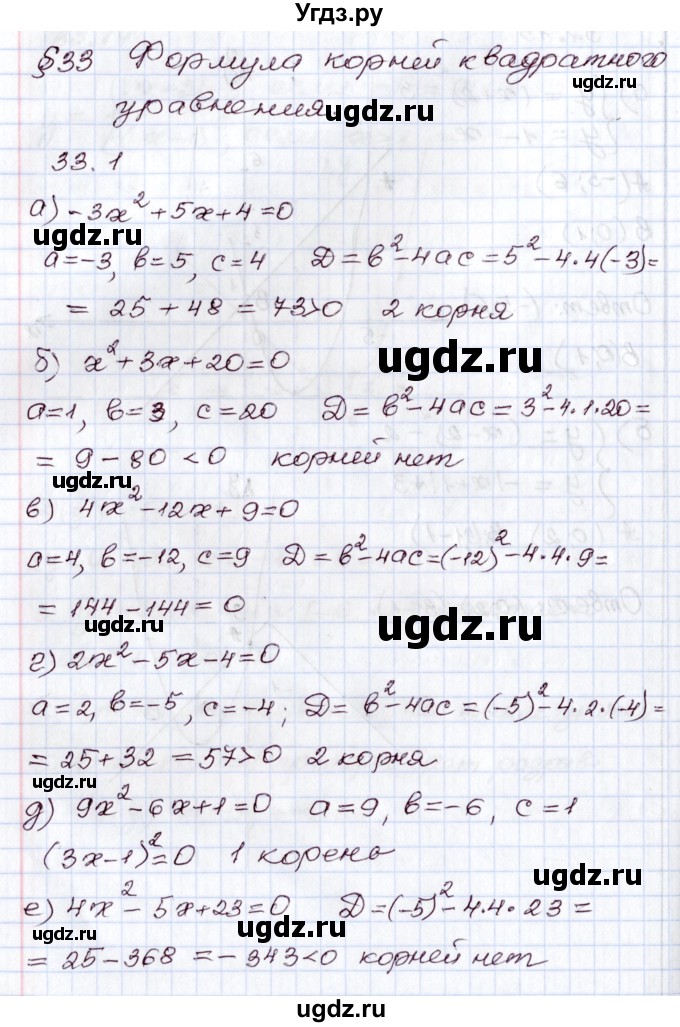 Угдз.ру
§33 Формула корней квадратного
уравнения
ugdz.ru
ugdz.ru
33.1
а) -3x²+5x+4=0
ugdz.ru
ugdz.ru
a=-3, b=5, c=4 Д=b²-4ac=5²-4·4(-3)=
= 25+48 = 73>0 2 корня
ugdz.ru
б) x²+3x+20=0
a=1, b=3, c=20 Д=b²-4ac=3²-4·1·20=
ugdz.ru
= 9-80 <0 корней нет
в) 4x²-12x+9=0
a=4, b=-12, c=9 Д=b²-4ac=(-12)²-4·4·9=
ugdz.ru
= 144-144=0
ugdz.ru
ugdz.ru
г) 2x²-5x-4=0
a=2, b=-5, c=-4; Д=b²-4ac=(-5)²-4·2·(-4)=
ugdz.ru
= 25+32 = 57>0 2 корня
ugdz.ru
д) 9x²-6x+1=0 a=9, b=-6, c=1
(3x-1)²=0 1 корень
ugdz.ru
е) 4x²-5x+23=0 Д=(-5)²-4·4·23=
ugdz.ru
ugdz.ru
= 25-368 =-343<0 корней нет
ugdz.ru